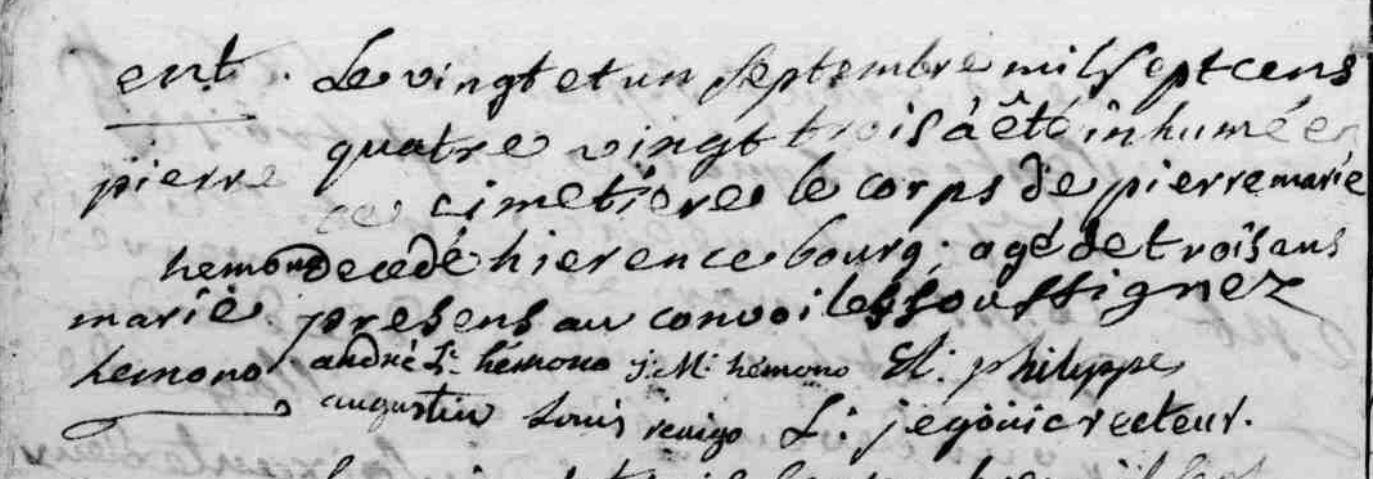 ent.
pierre
marie
hemono
Le vingt et un septembre mil sept cens
quatre vingt trois à êté inhumé en
ce cimetiere le corps de pierre marie
hemono decedé hier en ce bourg; agé de trois ans
presens au convoi les soussignez
andré L. hémono j. M. hémono St. philippe
augustin Louis L: jegouic recteur.